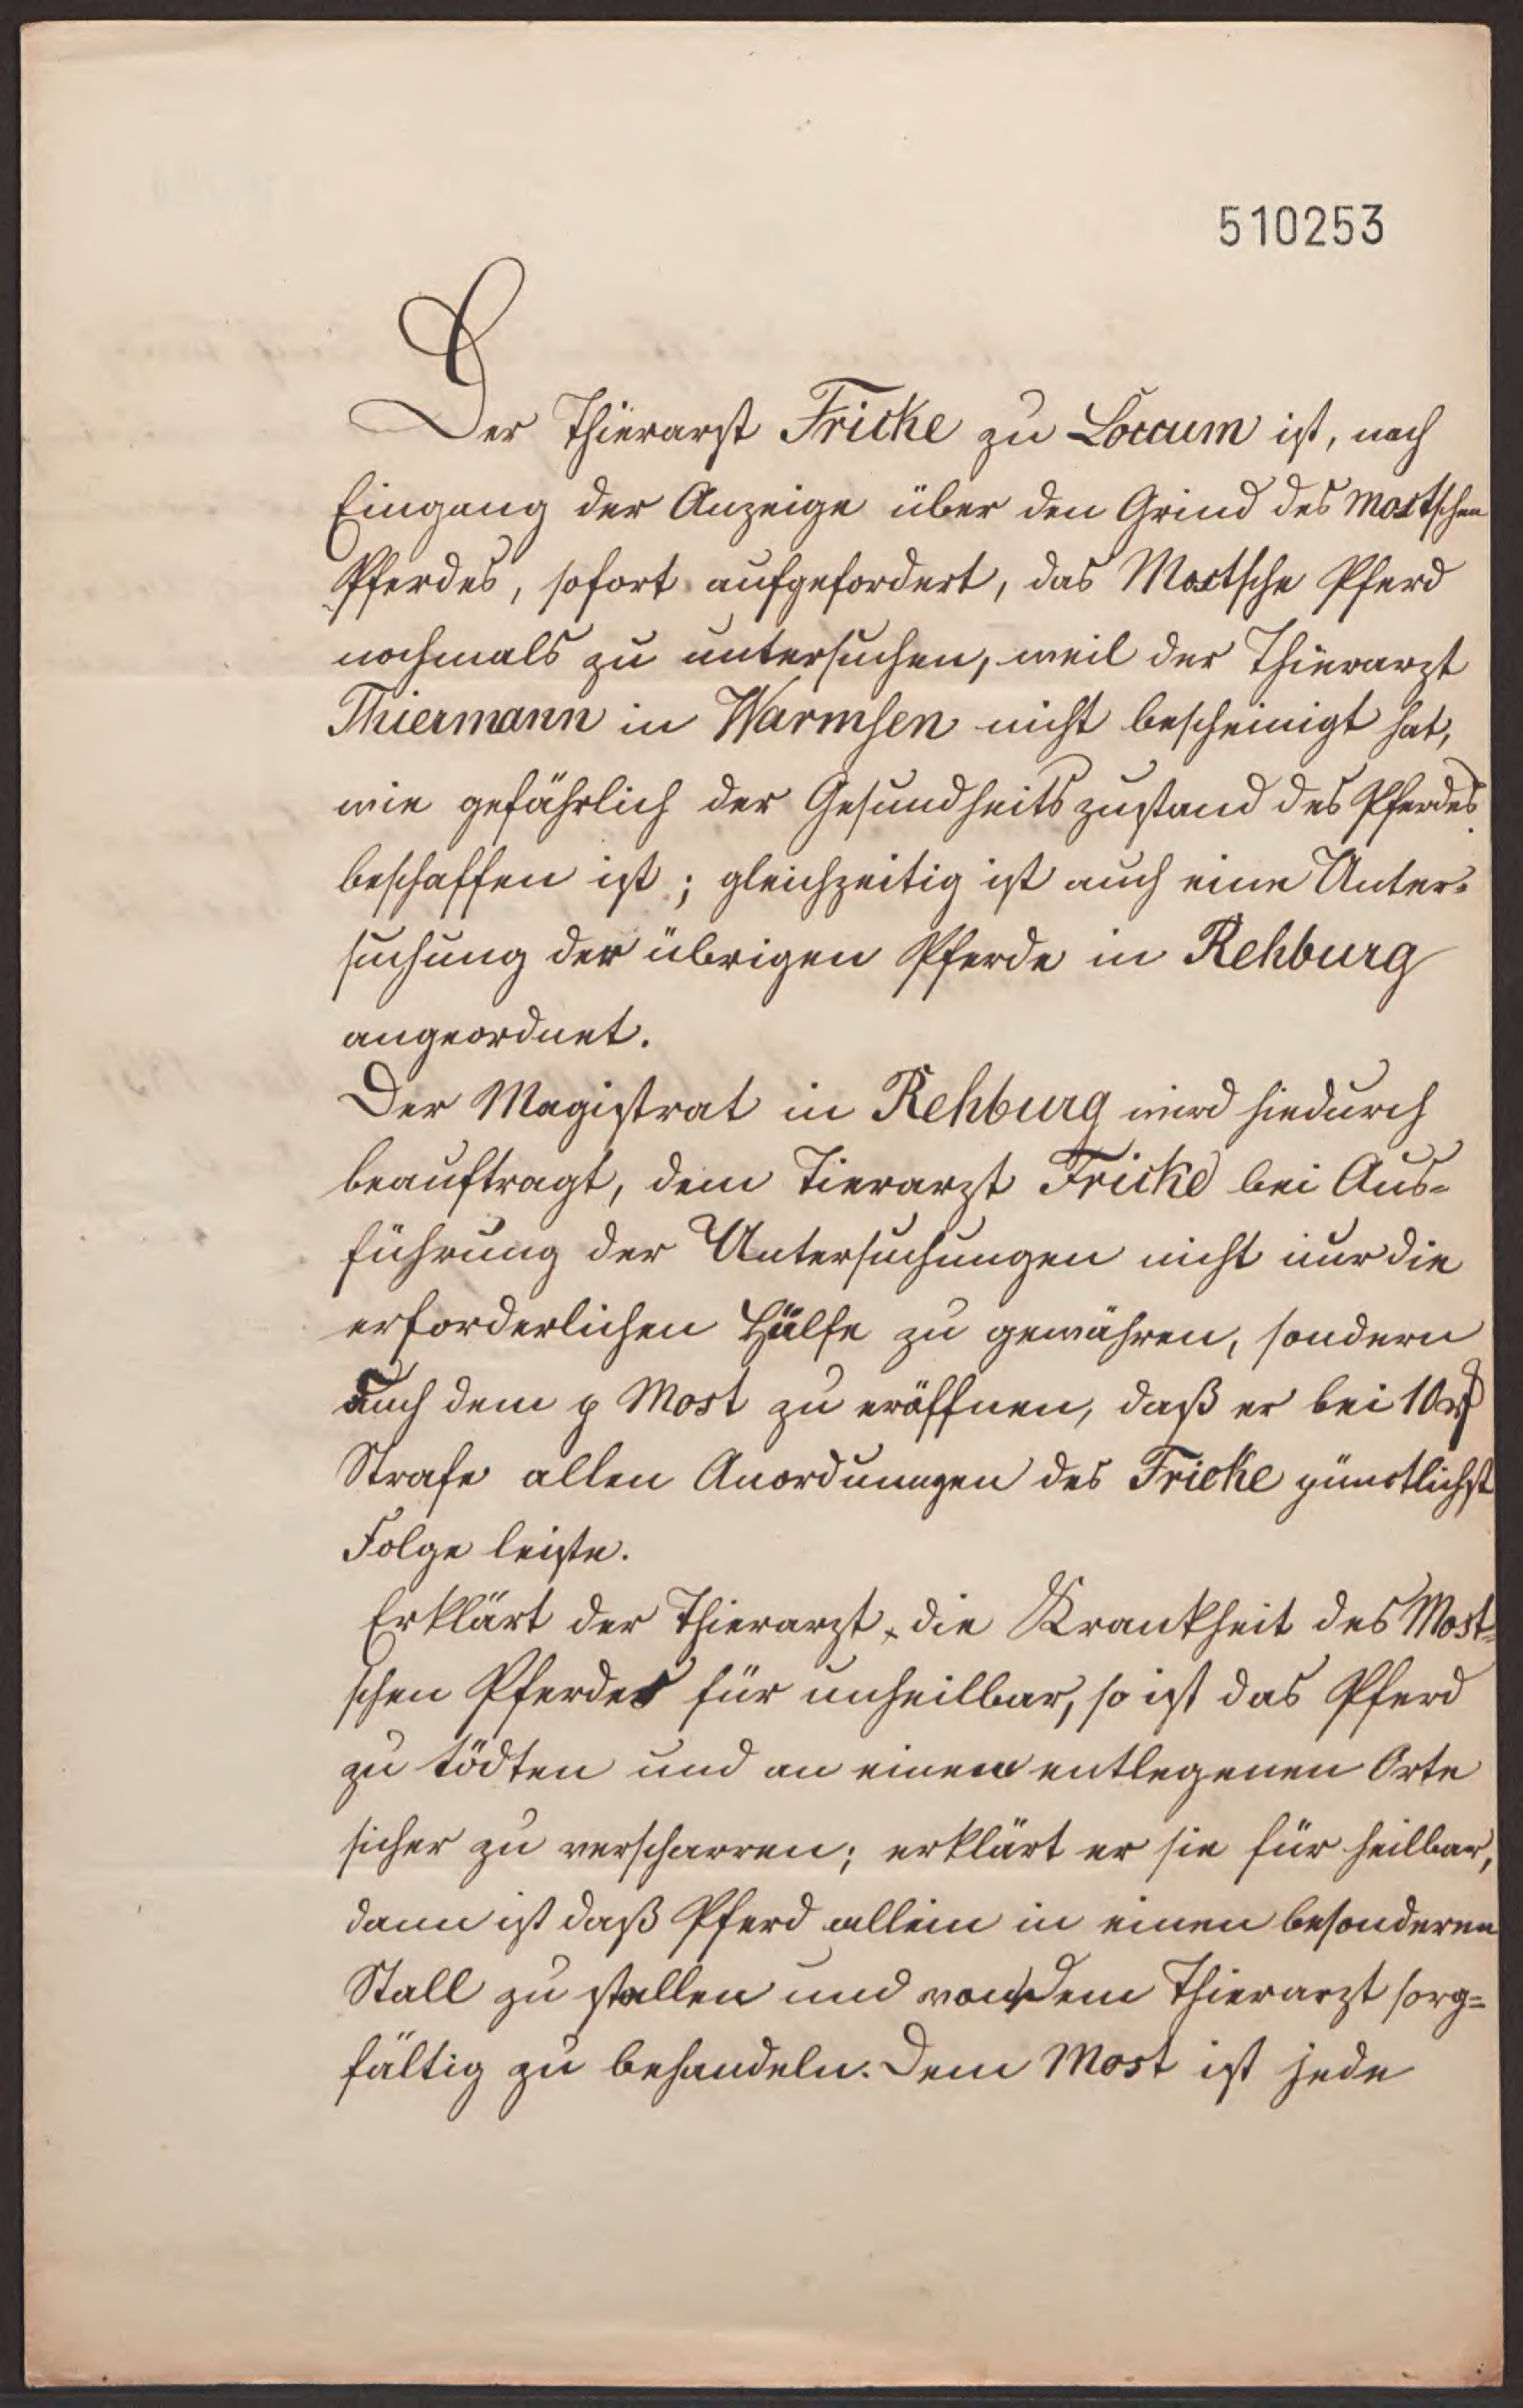 510253
Der Thierarzt Fricke zu Loccum ist, nach
Eingang der Anzeige über den Grind des Mostschen
Pferdes, sofort aufgefordert, das Mostsche Pferd
nochmals zu untersuchen, weil der Thierarzt
Thiermann in Warmsen nicht bescheinigt hat,
wie gefährlich der Gesundheitszustand des Pferdes
beschaffen ist; gleichzeitig ist auch eine Unter-
suchung der übrigen Pferde in Rehburg
angeordnet.
Der Magistrat in Rehburg wird hiedurch
beauftragt, dem Tierarzt Fricke bei Aus-
führung der Untersuchungen nicht nur die
erforderlichen Hülfe zu gewähren, sondern
auch dem p Most zu eröffnen, daß er bei 10 rp
Strafe allen Anordnungen des Fricke pünctlichst
Folge leiste.
Erklärt der Thierarzt die Krankheit des Most-
schen Pferdes für unheilbar, so ist das Pferd
zu tödten und an einem entlegenen Orte
sicher zu verscharren; erklärt er sie für heilbar,
dann ist daß Pferd allein in einen besonderen
Stall zu stallen und von dem Thierarzt sorg-
fältig zu behandeln. Dem Most ist jede